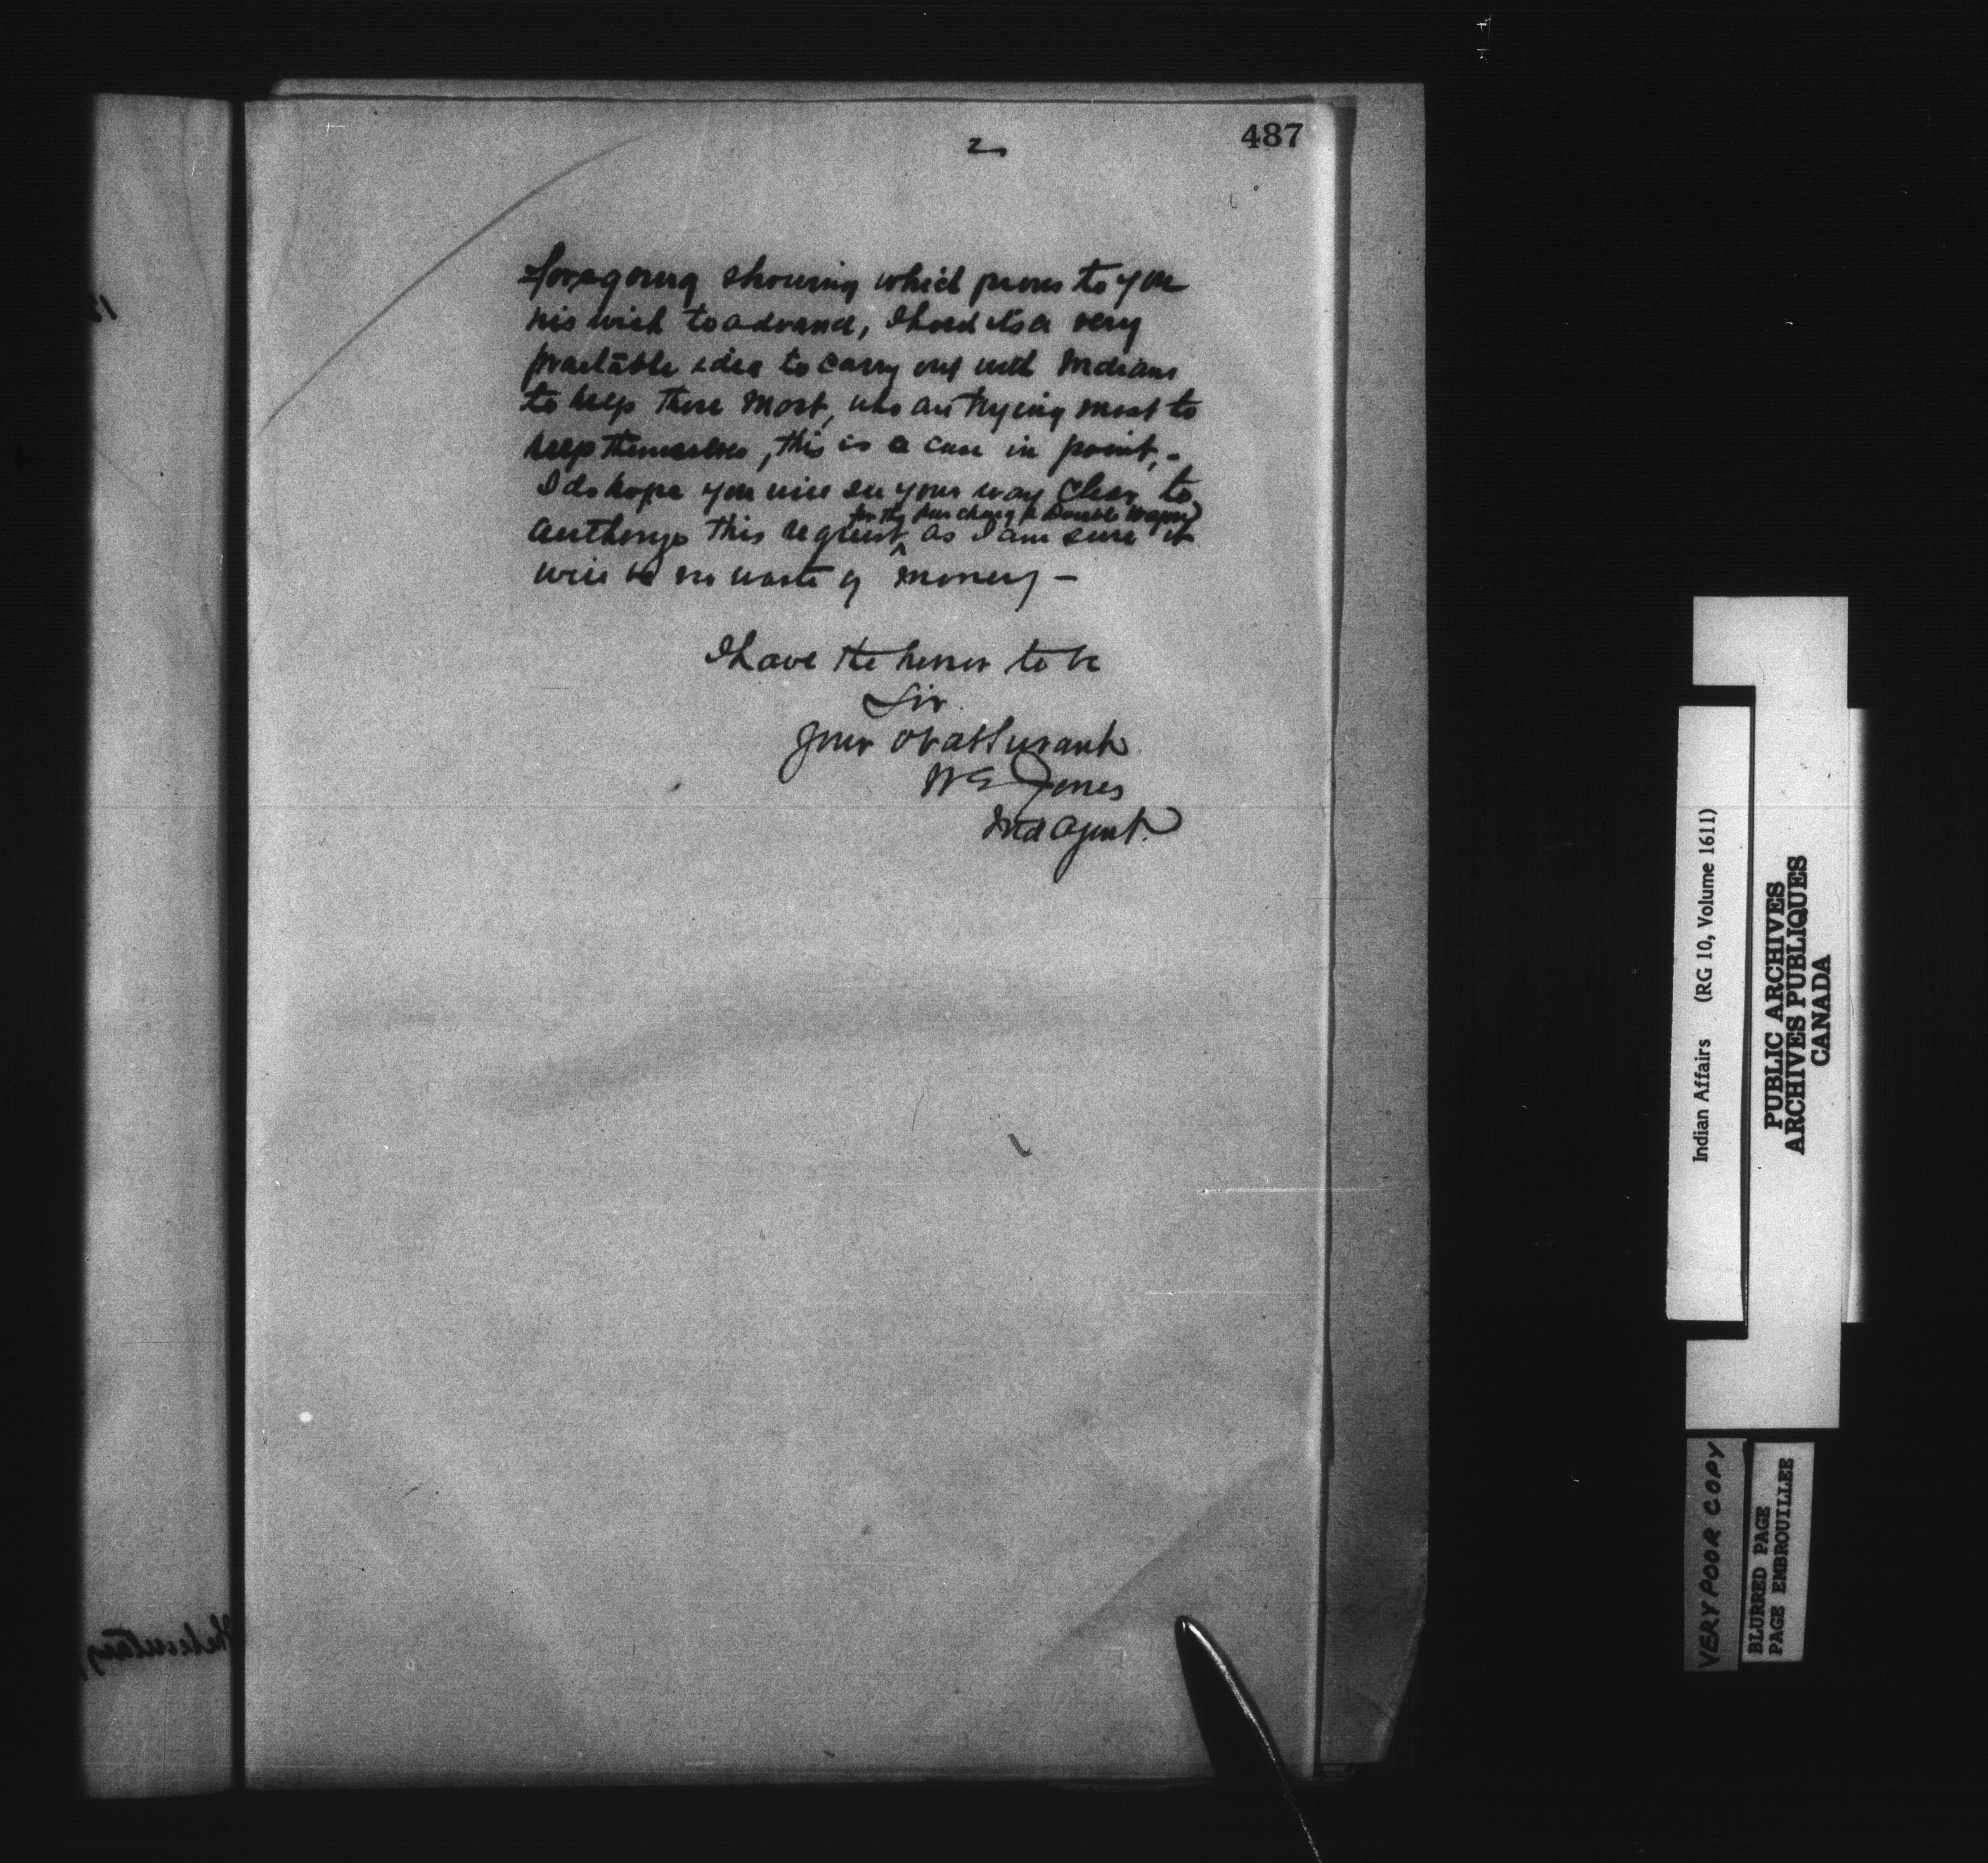 487
2
foregoing showing which proves to you
his wish to advance, I hold its a very
practable idea to carry out with Indians
to help those most, who are trying most to
help themselves, this is a case in point, -
I do hope you will see your way clear to
for the purchasing a Double Wagon
authorize this request ^ as I am sure it
will be no waste of money -
I have the honor to be
Sir
Your Obdt Servant
W S Jones
Ind Agent.
Indian Affairs (RG 10, Volume 1611)
PUBLIC ARCHIVES
ARCHIVES PUBLIQUES
CANADA
VERY POOR COPY
BLURRED PAGE
PAGE EMBROUILLEE